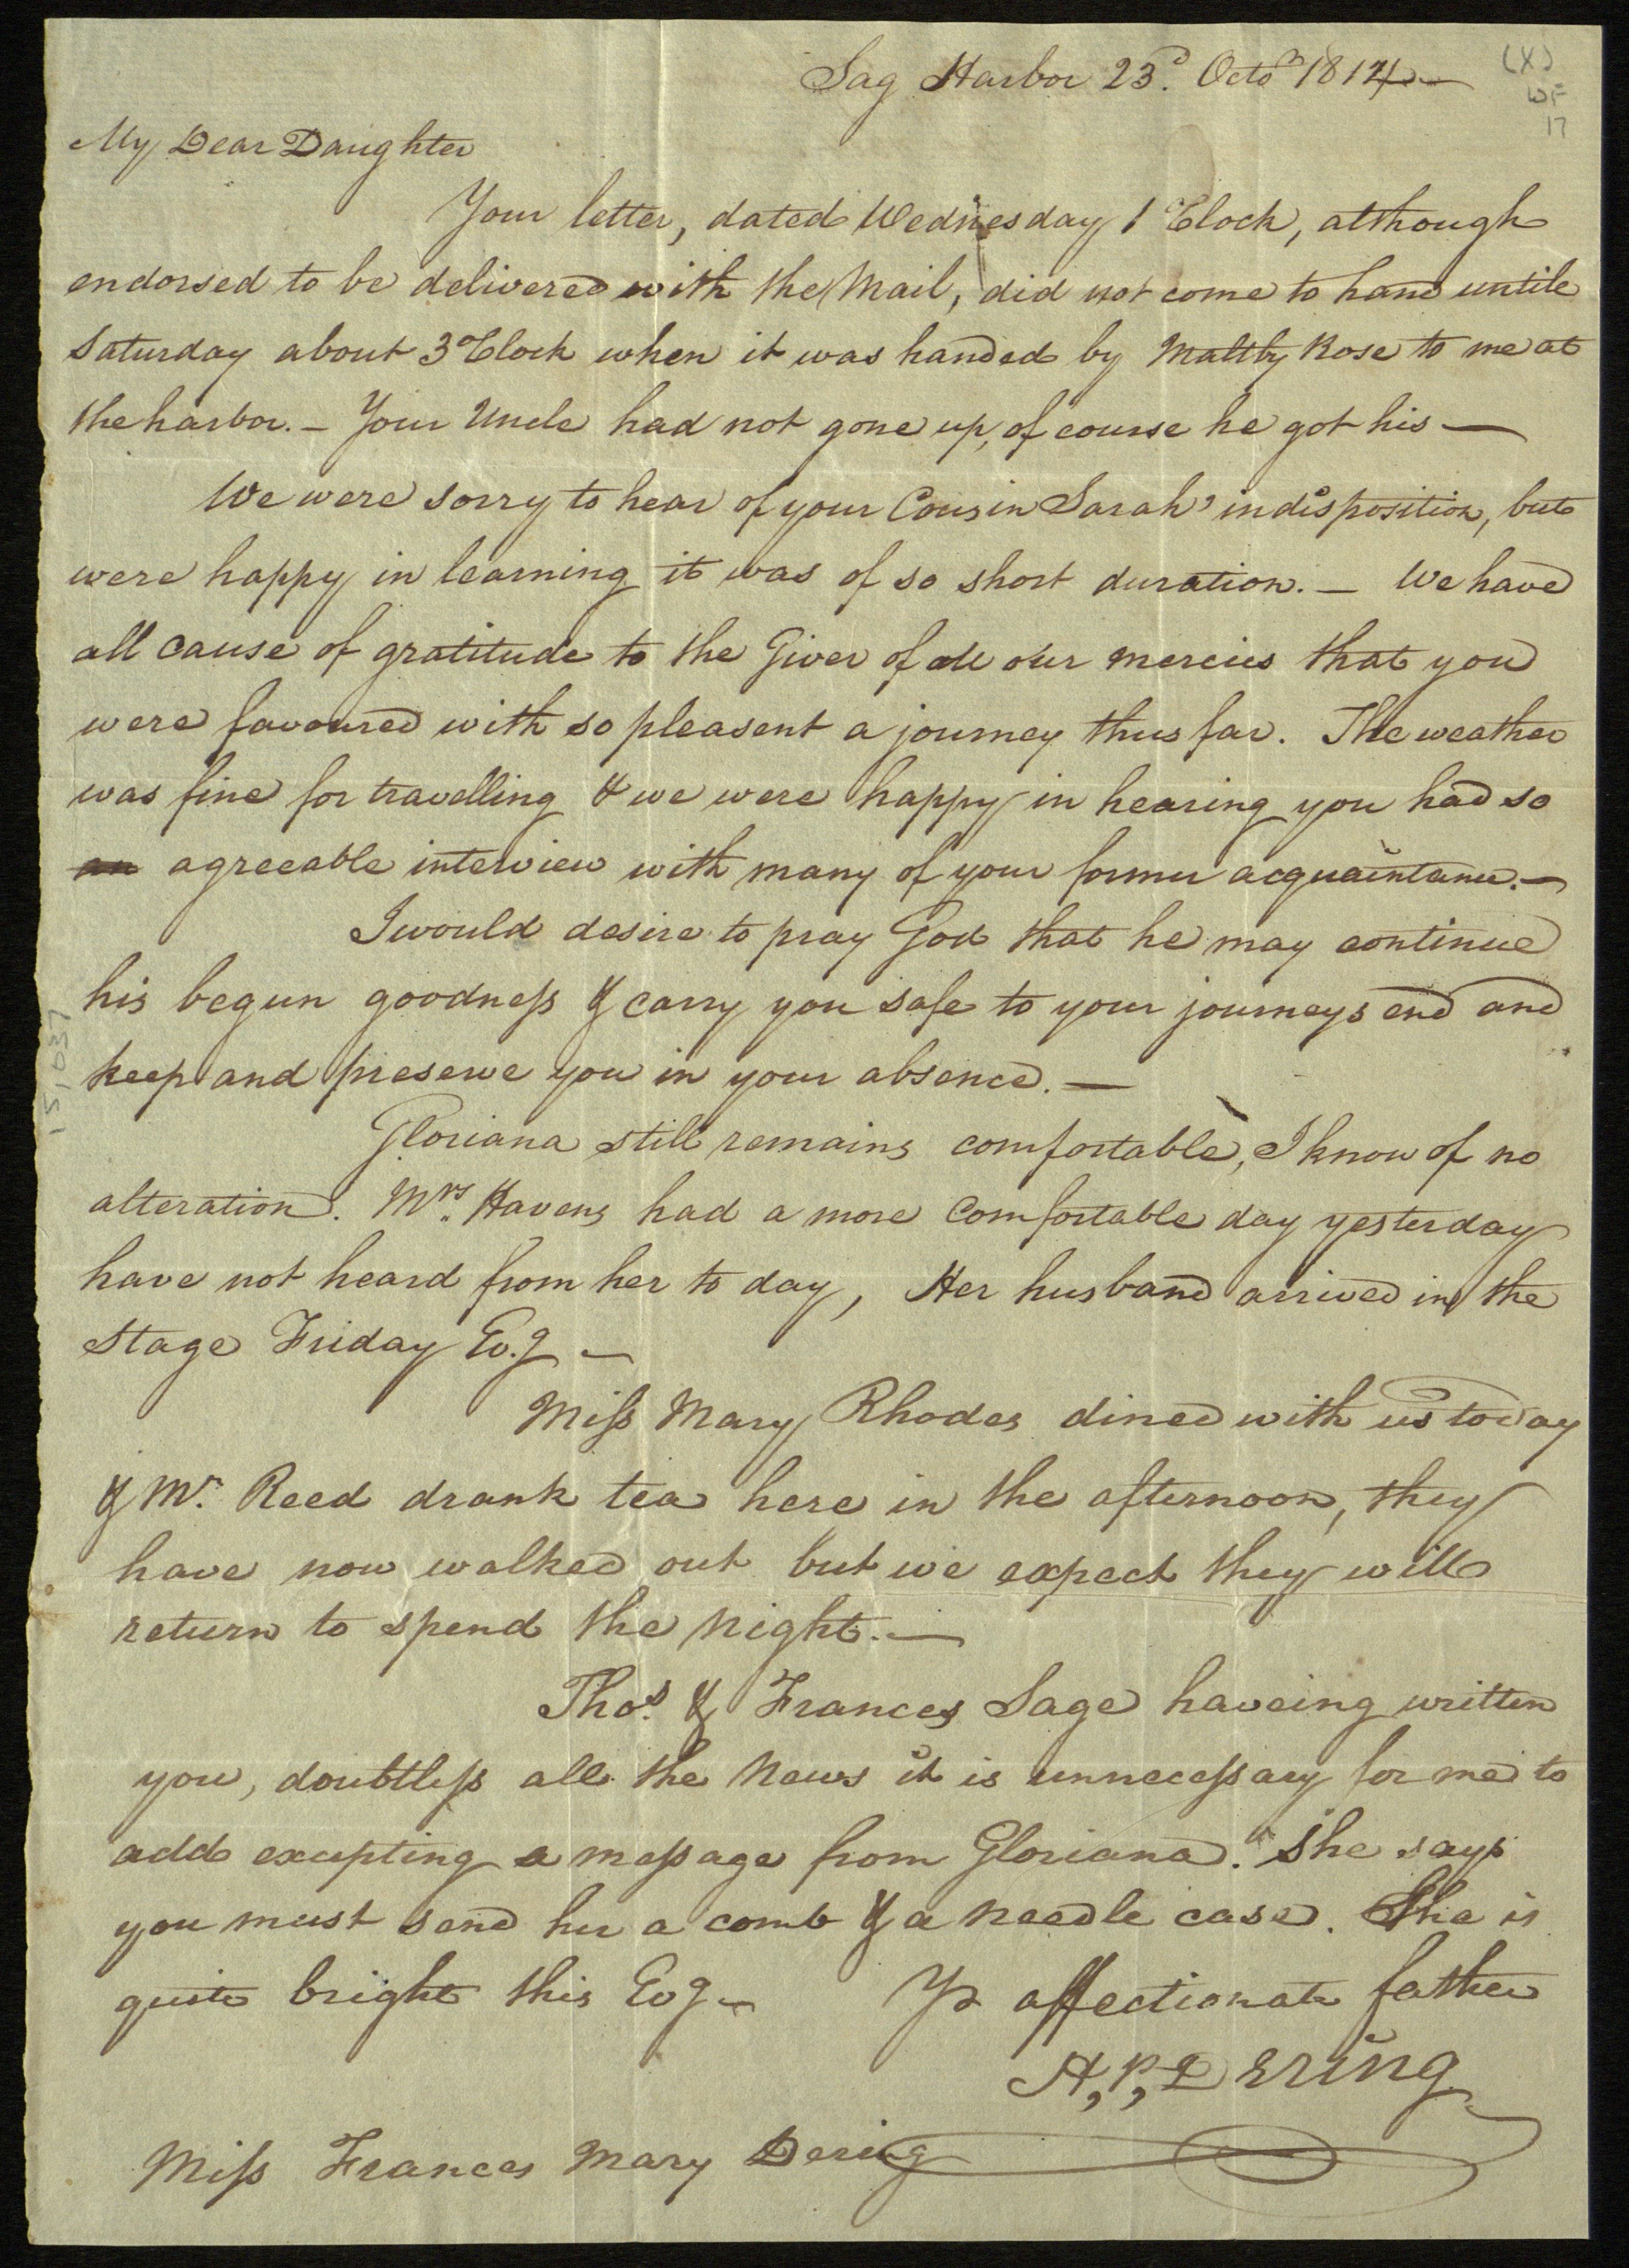 Sag Harbor 23.d Octo 1814 —
(X)
WF
17
My Dear Daughter
Your letter, dated Wednesday 1 oClock, although
endorsed to be delivered with the Mail, did not come to hand untile
Saturday about 3 oClock when it was handed by Maltby Rose to me at
the harbor. – Your Uncle had not gone up, of course he got his —
We were sorry to hear of your Cousin Sarah' indisposition, but
were happy in learning it was of so short duration. — We have
all cause of gratitude to the Giver of all our mercies that you
were favoured with so pleasent a journey thus far. The weather
was fine for travelling & we were happy in hearing you had so
an agreeable interview with many of your former acquaintance. —
I would desire to pray God that he may continue
his begun goodness & carry you safe to your journeys end and
keep and preserve you in your absence. —
Gloriana still remains comfortable, I know of no
alteration. Mrs. Havens had a more comfortable day yesterday
have not heard from her to day, Her husband arrived in the
Stage Friday Ev.g —
Miss Mary Rhodes dined with us today
& Mr. Reed drank tea here in the afternoon, they
have now walked out but we expect they will
return to spend the night. —
Thos. & Frances Sage haveing written
you, doubtless all the News it is unnecessary for me to
add excepting a message from Gloriana. She says
you must send her a comb & a needle case. She is
quite bright this Evg — Yr affectionate father
H,P, Dering
Miss Frances Mary Dering
151037